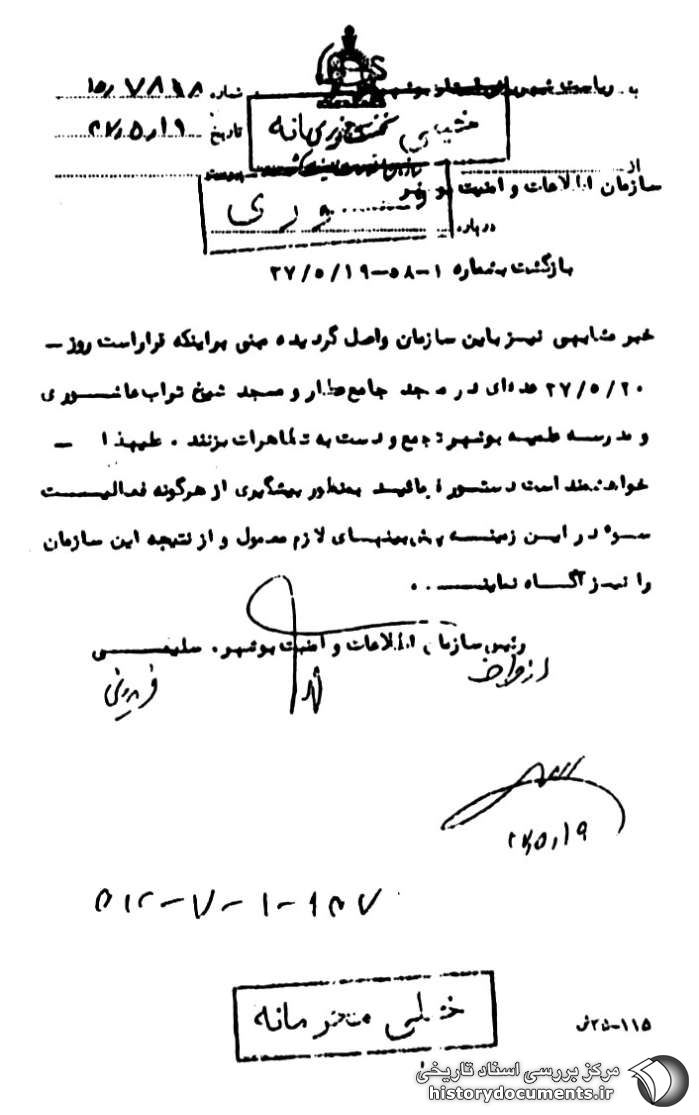 به ریاست شهربانی استان بوشهر شماره
تاریخ ۲۷/۵/۱۹
خیلی محرمانه
از
سازمان اطلاعات و امنیت بوشهر
درباره
بازگشت بشماره ۱-۵۸-۲۷/۵/۱۹
خبر مشابهی نیز باین سازمان واصل گردیده مبنی براینکه قراراست روز -
۲۷/۵/۲۰ عده‌ای در مسجد جامع عطار و مسجد شیخ تراب عاشوری
و مدرسه علمیه بوشهر تجمع و دست به تظاهرات بزنند . علیهذا -
خواهشمند است دستور فرمائید بمنظور پیشگیری از هرگونه فعالیت
سوء در این زمینه پیش‌بینیهای لازم معمول و از نتیجه این سازمان
را نیز آگاه نمایند . .
رئیس سازمان اطلاعات و امنیت بوشهر . سلیمی
از طرف
۲۷/۵/۱۹
خیلی محرمانه
۱۱۵-۲۵ش
مرکز بررسی اسناد تاریخی
historydocuments.ir